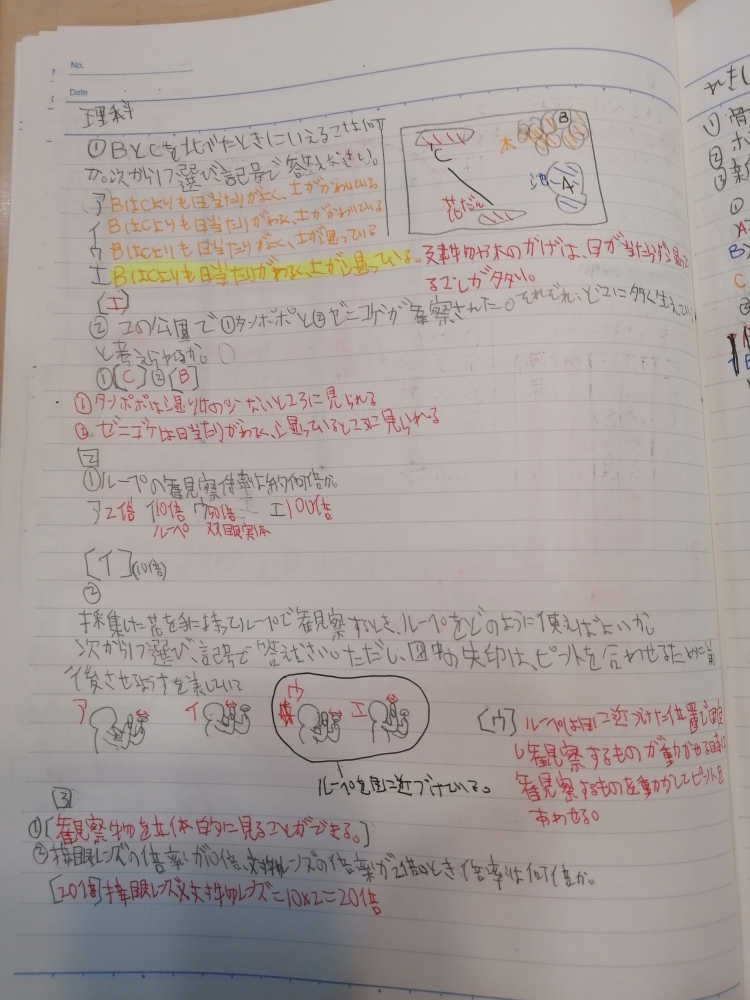 No.
Date
理科
①BとCを比べたときにいえることは何
か。次から1つ選び記号で答えなさい。
ア BはCよりも日当たりがよく、土がかわいている。
イ BはCよりも日当たりがわるく、土がかわいている
ウ BはCよりも日当たりがよく、土が湿っている
エ BはCよりも日当たりがわるく、土が湿っている。
C
B
木
池
A
花だん
建物や木のかげは、日が当たらず湿って
ることが多い。
[エ]
②この公園で①タンポポと②ゼニゴケが観察された。それぞれ、どこに多く生えてい
と考えられるか。
①[C]②[B]
①タンポポは湿りけの少ないところに見られる
②ゼニゴケは日当たりがわるく、湿っているところに見られる
2
①ルーペの観察倍率は約何倍か
ア2倍 イ10倍 ウ50倍 エ100倍
ルーペ 双眼実体
[イ](10倍)
②
採集した花を手に持ってルーペで観察するとき、ルーペをどのように使えばよいか。
次から1つ選び、記号で答えなさい。ただし、図中の矢印は、ピントを合わせるために前
後させるようすを表している
ア イ ウ エ
ルーペを目に近づけている。
[ウ] ルーペは目に近づけた位置で固定
し観察するものが動かせる時は
観察するものを動かしてピントを
あわせる。
3
①[観察物を立体的に見ることができる。]
②接眼レンズの倍率が10倍、対物レンズの倍率が2倍のとき倍率は何倍か。
[20倍]接眼レンズ×対物レンズ=10×2=20倍